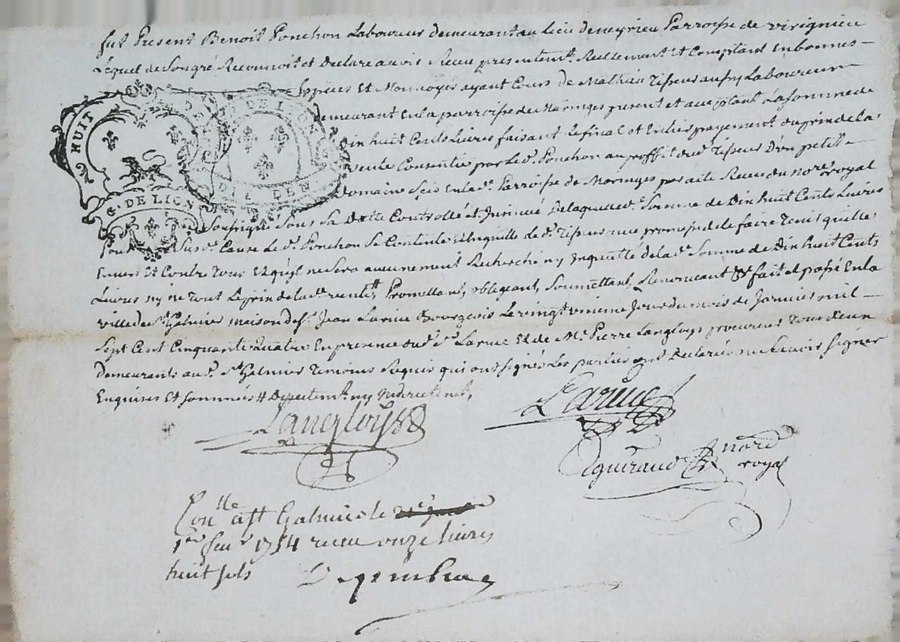 fut Present Benoit Ponchon Laboureur demeurant au Lieu de meyrieu Parroisse de virignieu
Lequel de Son gré Reconnoit et Declare avoir Receu presentemt. Reellement et Comptant en bonnes
Especes et Monnoyes ayant Cours de Mathieu Tisseur aussy Laboureur
demeurant en la parroisse de Maringes present et aceptant La somme de
Dix huit Cents Livres faisant Le final et Entier payement du prix de la
vente Consentie par Led. Ponchon au proffit dud. Tisseur D'un petit
Domaine Scis en lad. Parroisse de Maringes par acte Receu du Nore. royal
Soussigné Sous Sa Datte Controllé et Jnsinué De laquelle d. Somme de Dix huit Cents Livres
pour Cause Led. Ponchon Se Contente Et en quitte led. Tisseur avec promesse de faire Tenir quitte
Envers Et Contre Tous Et quil ne Sera aucunement Recherché ny Jnquietté de lad. Somme de Dix huit Cents
Livres ny ne Tout Le prix de lad. vente # Promettant, obligeant, Soumettant, Renoncant & fait et passé En la
ville de St. Galmier maison de Sr. Jean Larüe Bourgeois Le vingt unieme Jour du mois de Janvier mil
Sept Cent Cinquante quatre En presence dud. Sr. Larue Et de Me. Pierre Langloys procureur Tous deux
demeurants aud. St. Galmier Temoins Requis qui ont signé Les parties ont Declarés ne Scavoir Signer
Enquises Et Sommées # Directemt. ny Jndirectemt.
Langloys
Larüe
Aguiraud Nore.
royal
G. DE LION
HUIT
G. DE LION
Conlle. a St Galmier le
1er fevr 1754 receu onze livres
huit sols